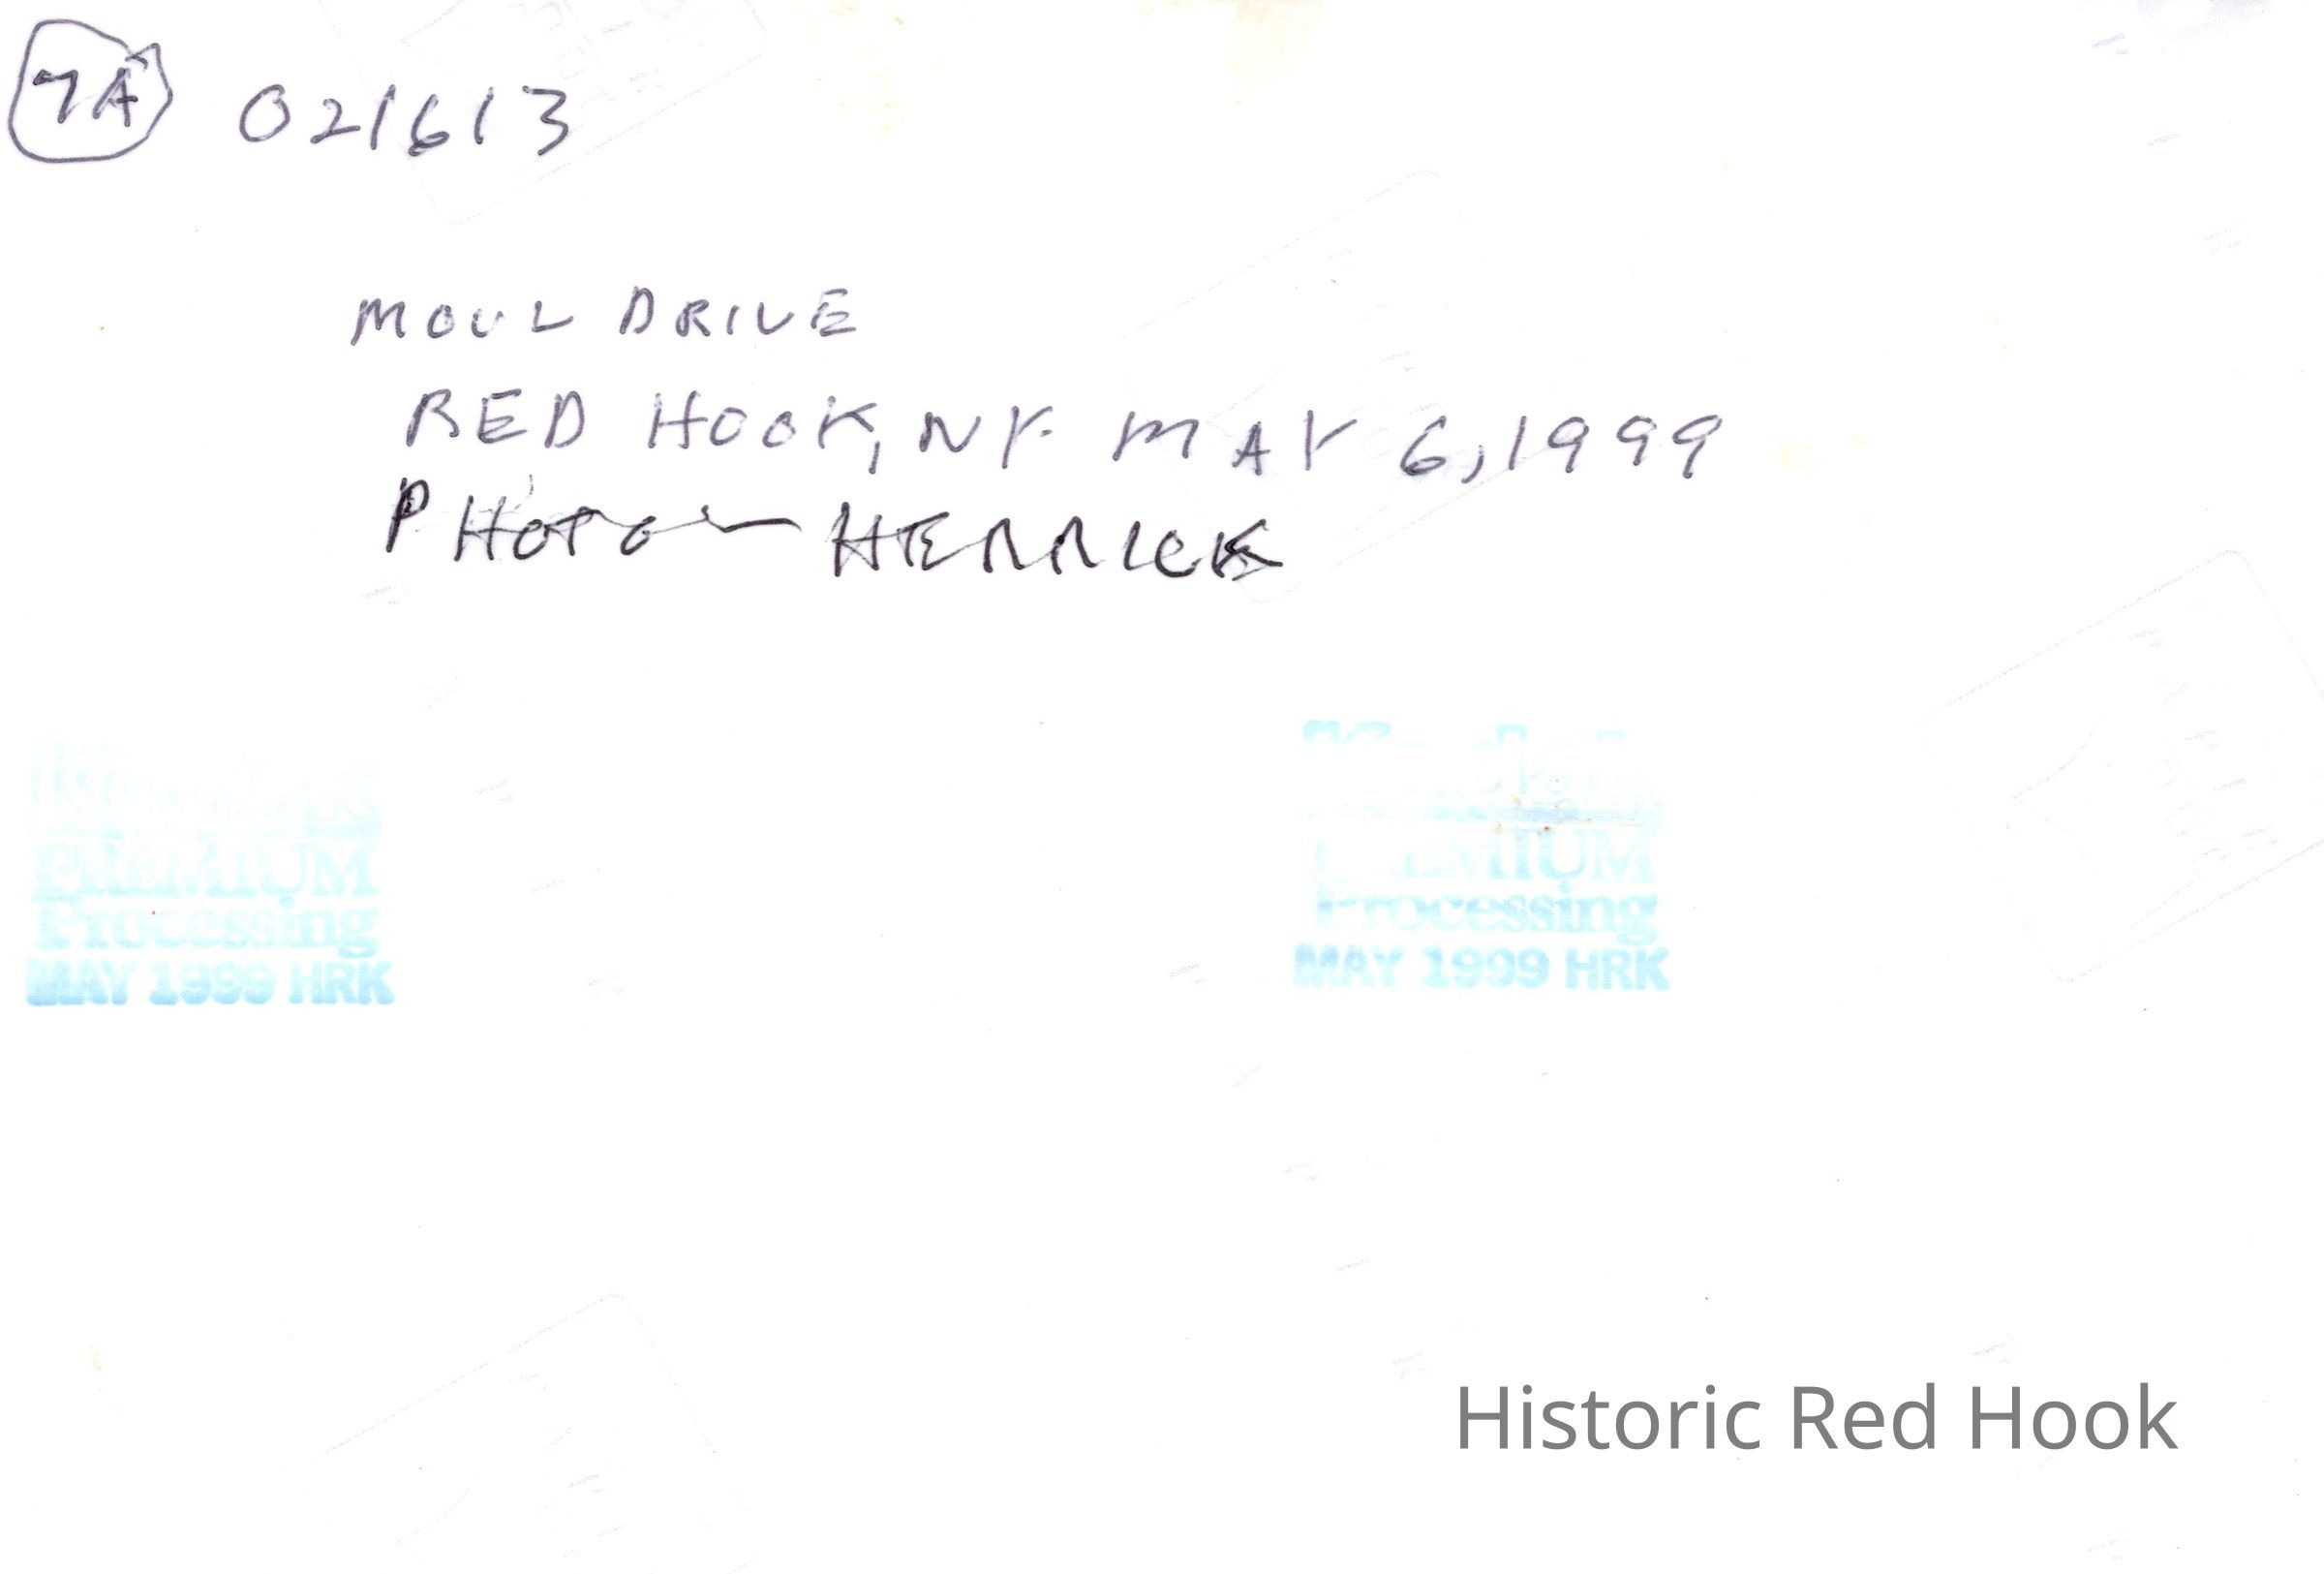 7A 021613
MOUL DRIVE
RED HOOK, NY. MAY 6, 1999
PHOTO - HERRICK
PREMIUM
Processing
MAY 1999 HRK
PREMIUM
Processing
MAY 1999 HRK
Historic Red Hook